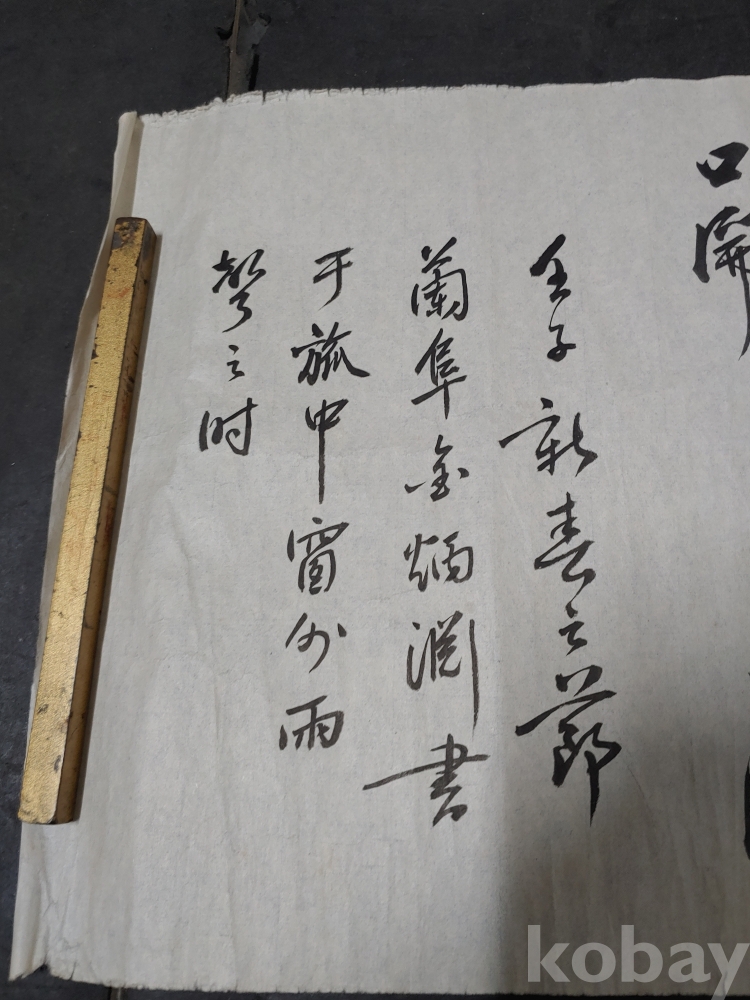 口開
壬子新春之節
蘭阜金炳淵書
于旅中窗外雨
聲之时
kobay